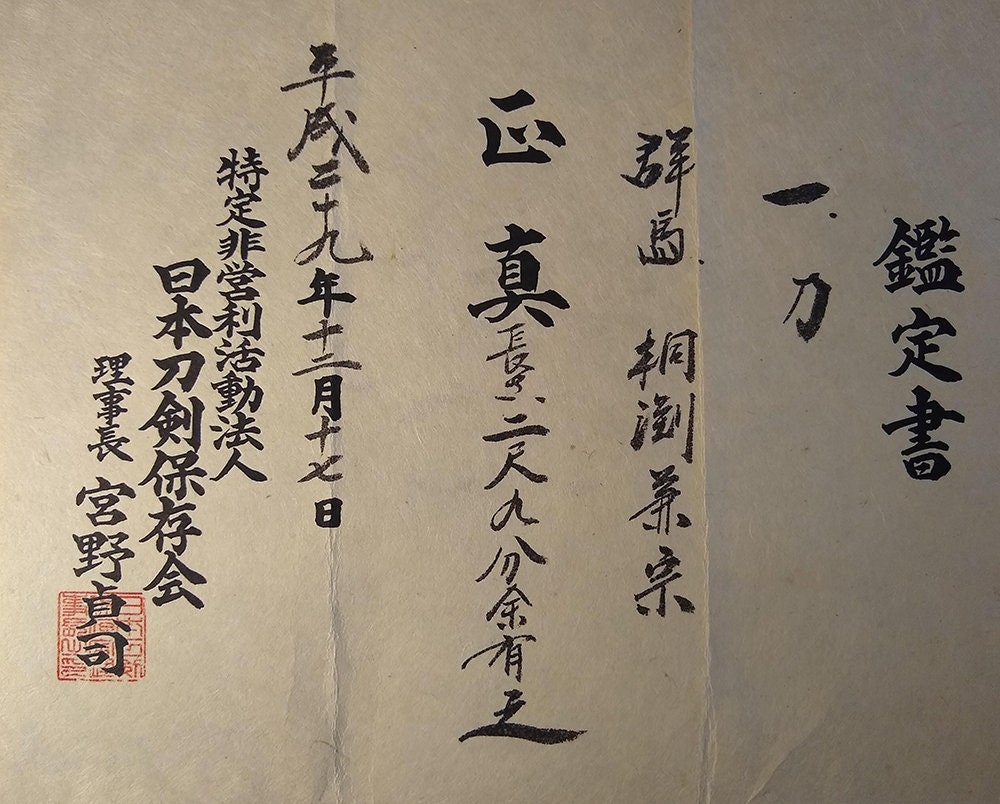 鑑定書
一、刀
群馬 桐渕兼宗
正真 長さ二尺九分余有之
平成二十九年十二月十七日
特定非営利活動法人
日本刀剣保存会
理事長 宮野貞司